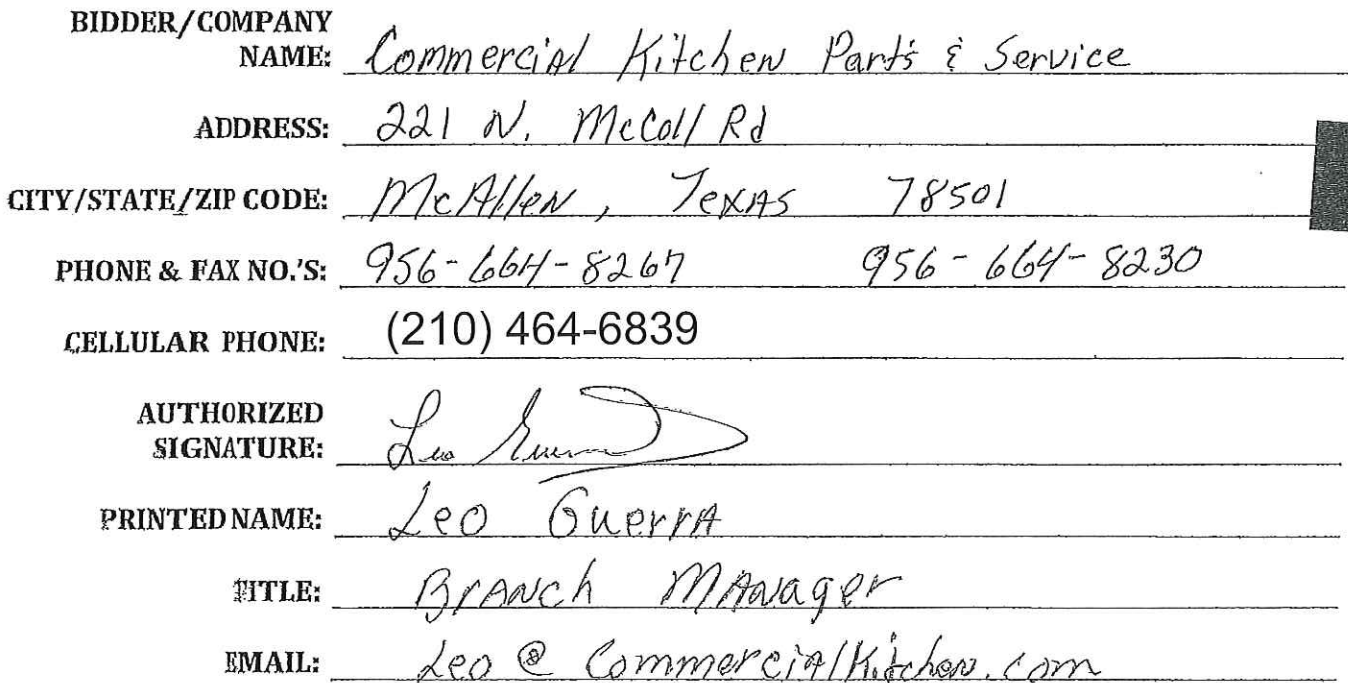 BIDDER/COMPANY
NAME: Commercial Kitchen Parts & Service
ADDRESS: 221 N. McColl Rd
CITY/STATE/ZIP CODE: McAllen, Texas 78501
PHONE & FAX NO.'S: 956-664-8267 956-664-8230
CELLULAR PHONE: (210) 464-6839
AUTHORIZED
SIGNATURE: Leo Guerra
PRINTED NAME: Leo Guerra
TITLE: Branch Manager
EMAIL: Leo @ CommercialKitchen.com